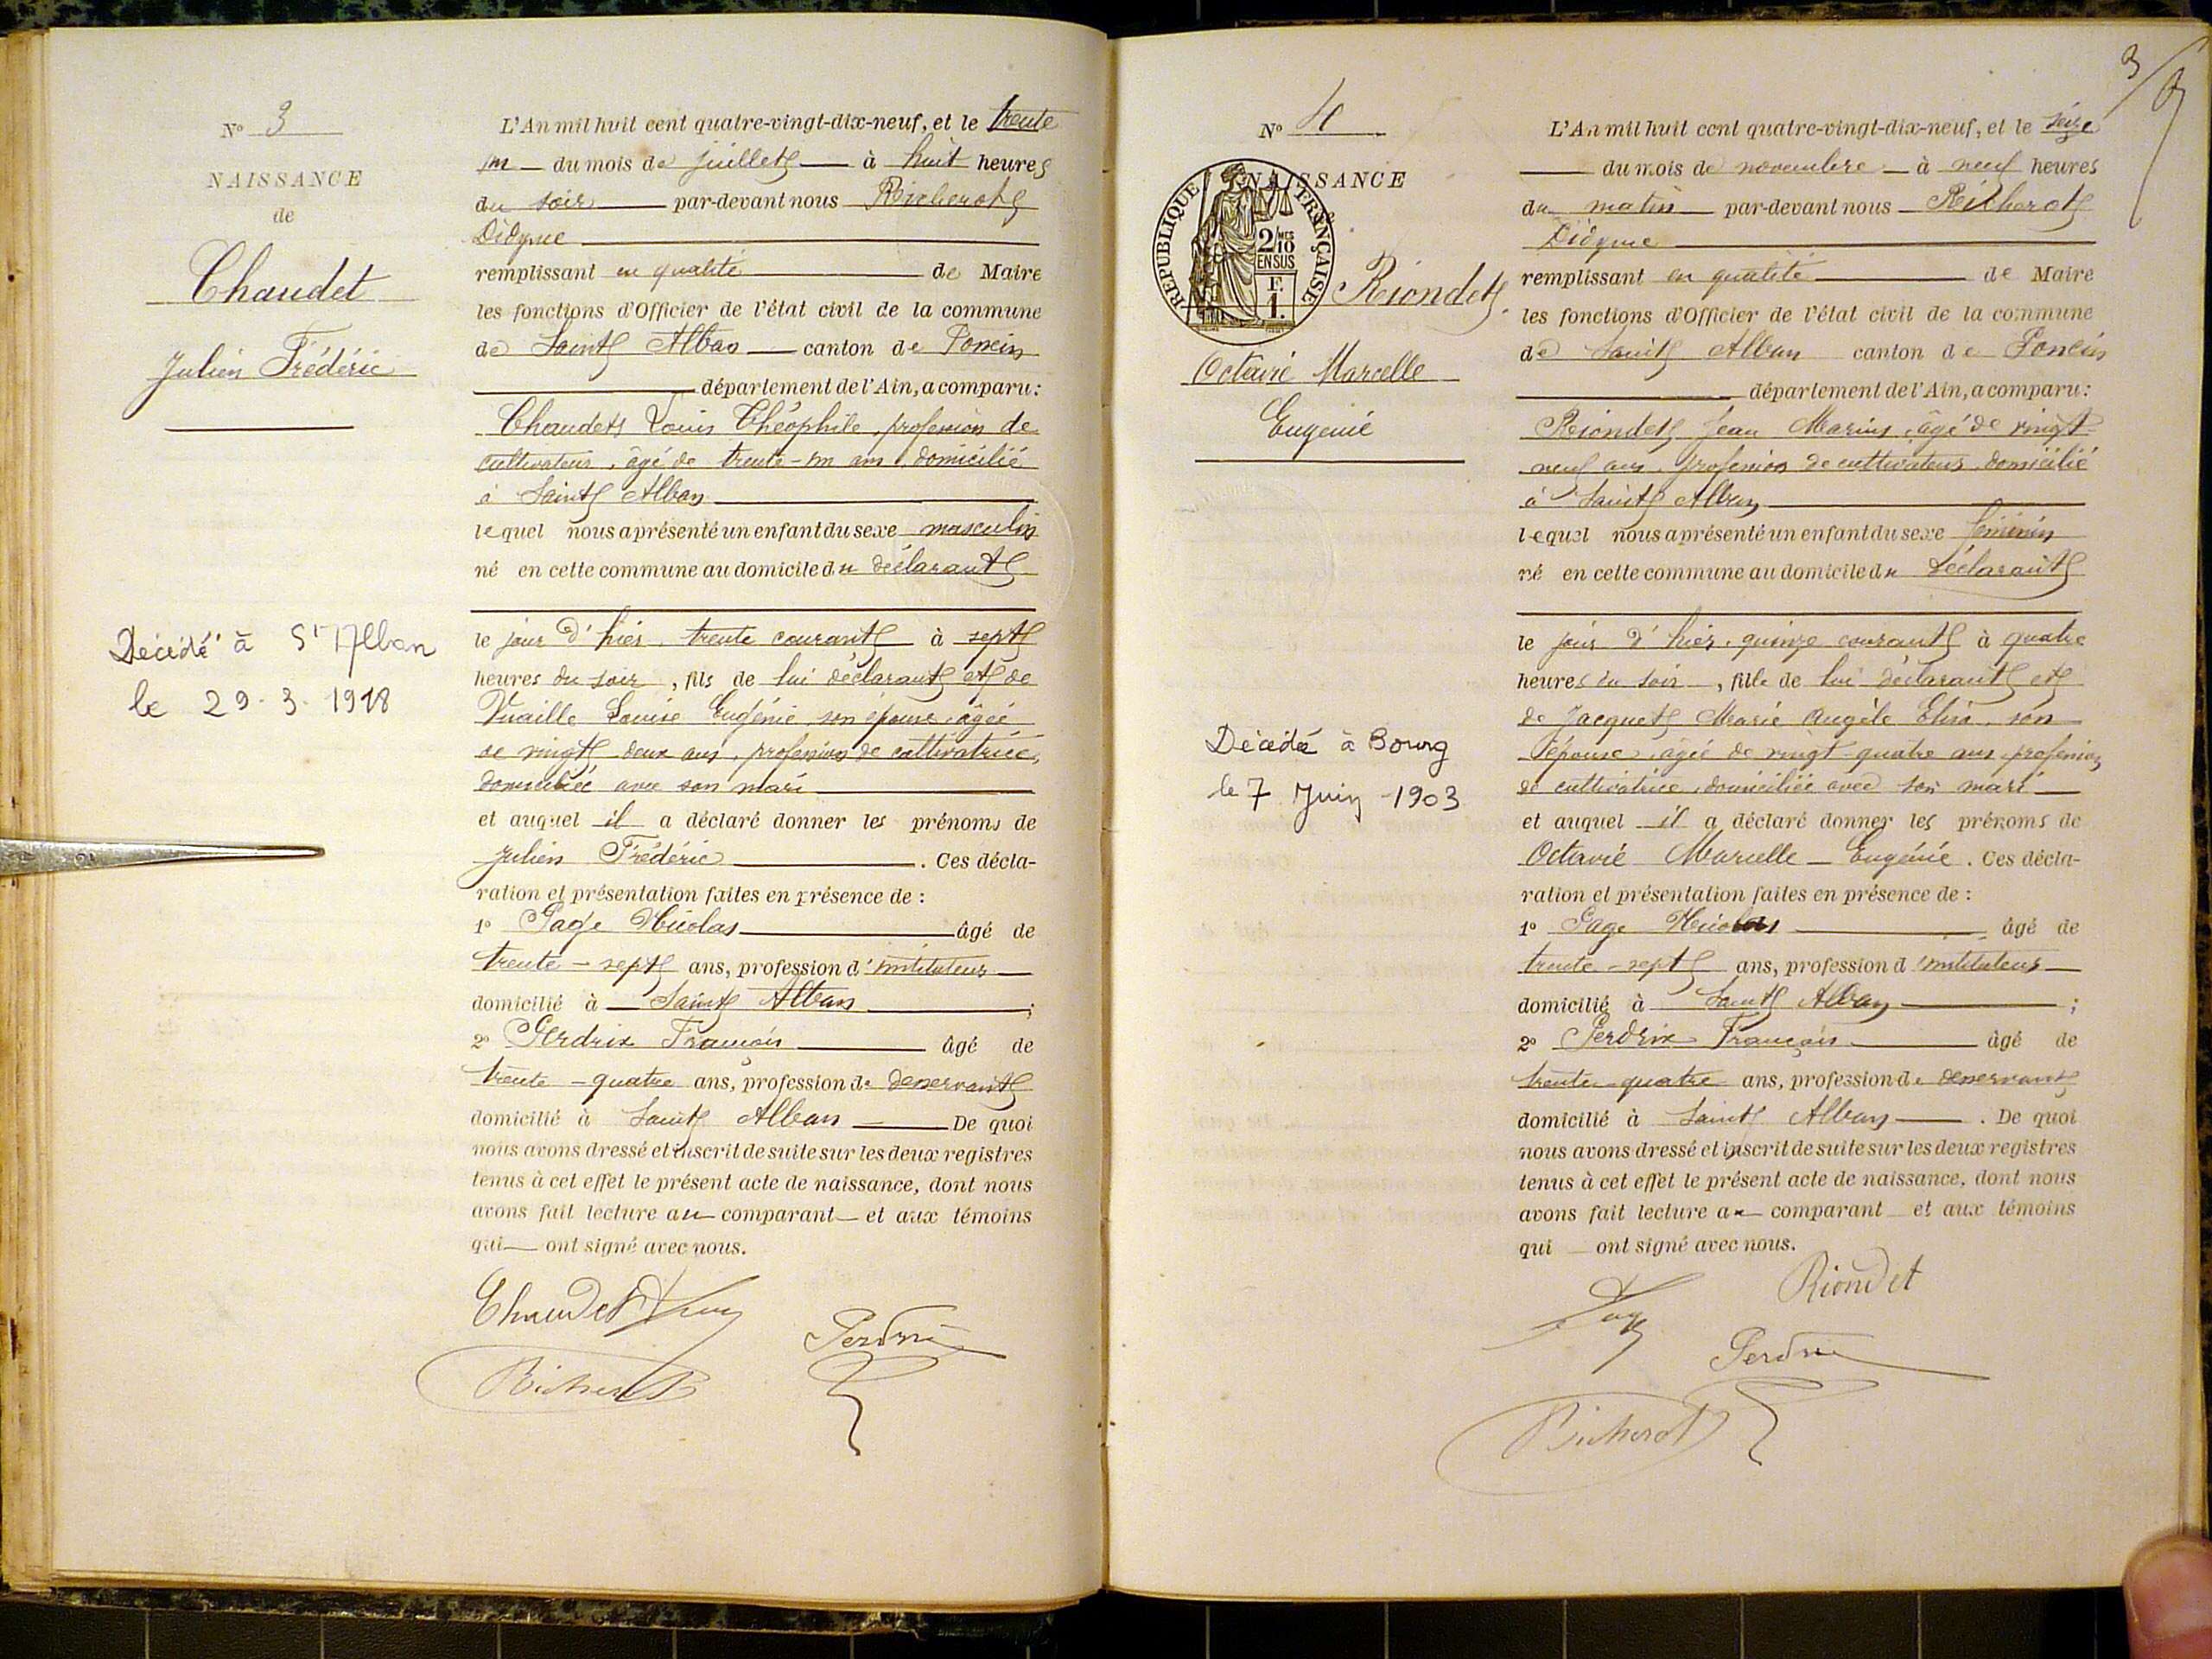 N° 3
NAISSANCE
de
Chaudet
Julien Frédéric
Décédé à St Alban
le 29.3.1918
L'An mil huit cent quatre-vingt-dix-neuf, et le trente
un du mois de juillet à huit heures
du soir par-devant nous Richerot
Didyme
remplissant en qualité de Maire
les fonctions d'Officier de l'état civil de la commune
de Saint Alban canton de Poncin
département de l'Ain, a comparu:
Chaudet Louis Théophile, profession de
cultivateur, âgé de trente-un ans, domicilié
à Saint Alban
lequel nous a présenté un enfant du sexe masculin
né en cette commune au domicile du déclarant
le jour d'hier, trente courant à sept
heures du soir, fils de lui déclarant et de
Vuaille Louise Eugénie, son épouse, âgée
de vingt-deux ans, profession de cultivatrice,
domiciliée avec son mari
et auquel il a déclaré donner les prénoms de
Julien Frédéric. Ces décla-
ration et présentation faites en présence de :
1° Page Nicolas âgé de
trente-sept ans, profession d'instituteur
domicilié à Saint Alban ;
2° Perdrix François âgé de
trente-quatre ans, profession de desservant
domicilié à Saint Alban De quoi
nous avons dressé et inscrit de suite sur les deux registres
tenus à cet effet le présent acte de naissance, dont nous
avons fait lecture au comparant et aux témoins
qui ont signé avec nous.
Chaudet
Perdrix
Richerot
3
N° 4
NAISSANCE
RÉPUBLIQUE FRANÇAISE
2/10 MES
EN SUS
F.
1.
Riondet
Octavie Marcelle
Eugénie
Décédé à Bourg
le 7 Juin 1903
L'An mil huit cent quatre-vingt-dix-neuf, et le seize
du mois de novembre à neuf heures
du matin par-devant nous Richerot
Didyme
remplissant en qualité de Maire
les fonctions d'Officier de l'état civil de la commune
de Saint Alban canton de Poncin
département de l'Ain, a comparu:
Riondet Jean Marius, âgé de vingt-
neuf ans, profession de cultivateur, domicilié
à Saint Alban
lequel nous a présenté un enfant du sexe féminin
né en cette commune au domicile du déclarant
le jour d'hier, quinze courant à quatre
heures du soir, fille de lui déclarant et
de Jacquet Marie Angèle Elisa, son
épouse, âgée de vingt-quatre ans, profession
de cultivatrice, domiciliée avec son mari
et auquel il a déclaré donner les prénoms de
Octavie Marcelle Eugénie. Ces décla-
ration et présentation faites en présence de :
1° Page Nicolas âgé de
trente-sept ans, profession d'instituteur
domicilié à Saint Alban ;
2° Perdrix François âgé de
trente-quatre ans, profession de desservant
domicilié à Saint Alban. De quoi
nous avons dressé et inscrit de suite sur les deux registres
tenus à cet effet le présent acte de naissance, dont nous
avons fait lecture au comparant et aux témoins
qui ont signé avec nous.
Riondet
Page
Perdrix
Richerot